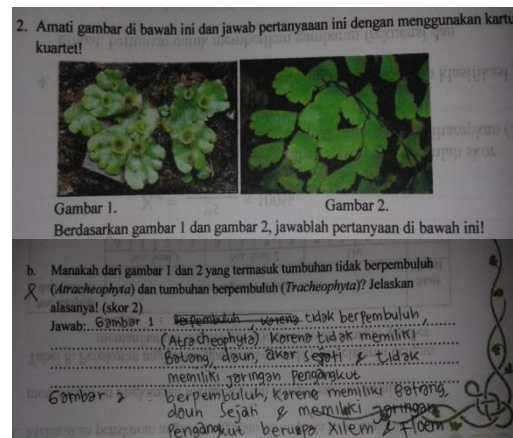 2. Amati gambar di bawah ini dan jawab pertanyaaan ini dengan menggunakan kartu
kuartet!
Gambar 1.
Gambar 2.
Berdasarkan gambar 1 dan gambar 2, jawablah pertanyaan di bawah ini!
b. Manakah dari gambar 1 dan 2 yang termasuk tumbuhan tidak berpembuluh
(Atracheophyta) dan tumbuhan berpembuluh (Tracheophyta)? Jelaskan
alasanya! (skor 2)
Jawab: Gambar 1 : berpembuluh, karena tidak berpembuluh,
(Atracheophyta) karena tidak memiliki
Batang, daun, akar sejati & tidak
memiliki jaringan pengangkut
Gambar 2 berpembuluh, karena memiliki Batang,
daun sejati & memiliki jaringan
pengangkut berupa xilem & Floem